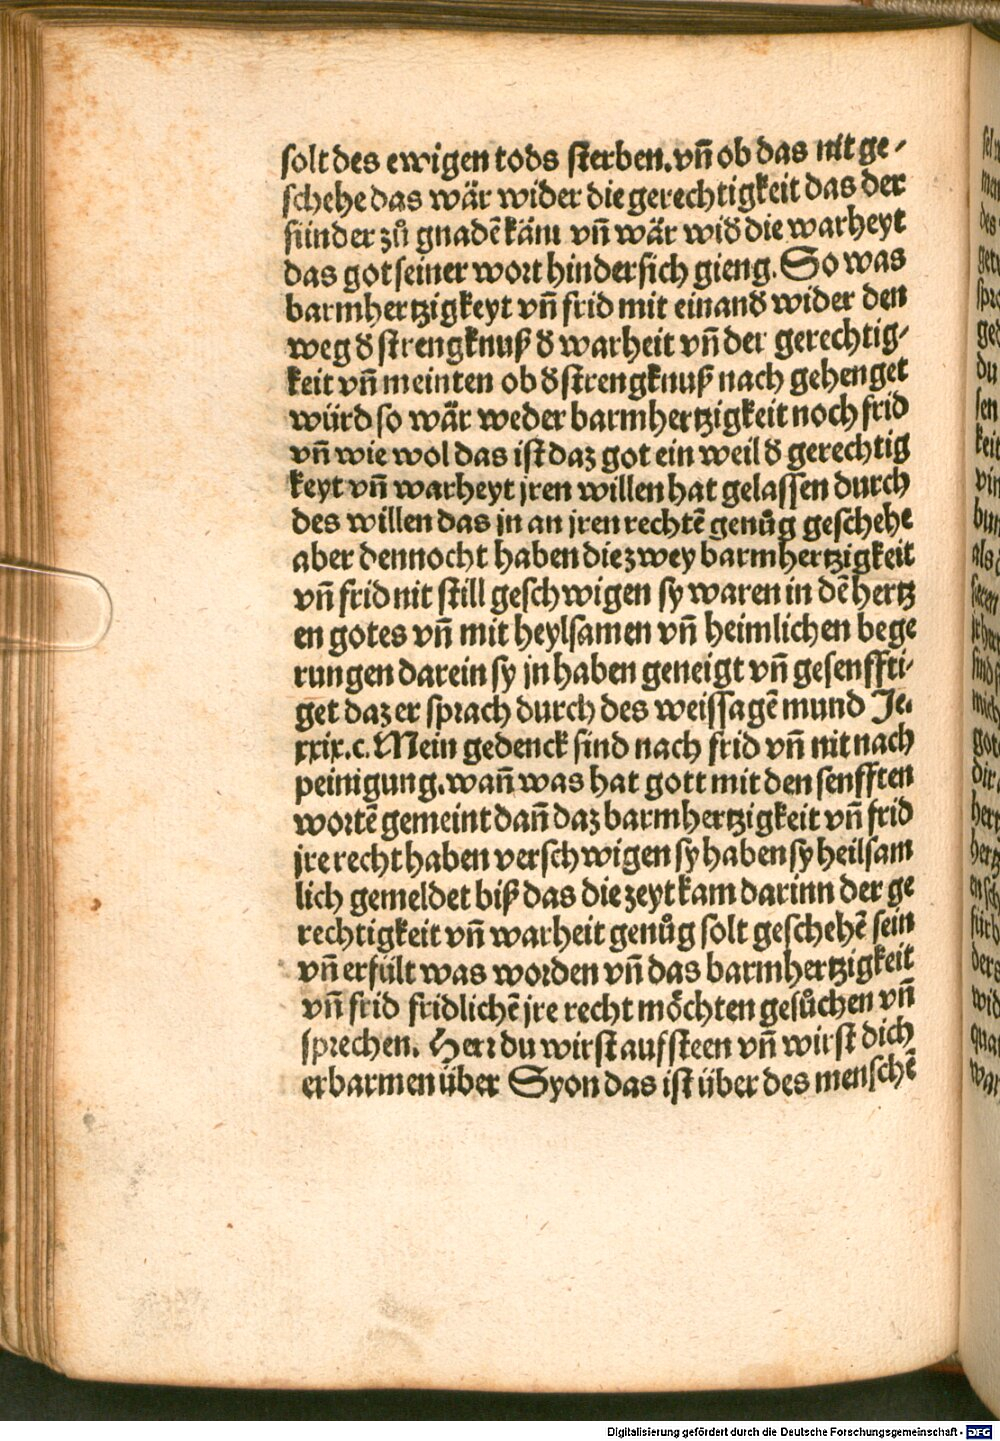 solt des ewigen tods sterben. vñ ob das nit ge-
schehe das wär wider die gerechtigkeit das der
sünder zů gnadē käm vñ wär wid᷑ die warheyt
das got seiner wort hindersich gieng. So was
barmhertzigkeyt vñ frid mit einand᷑ wider den
weg d᷑ strengknuß d᷑ warheit vñ der gerechtig-
keit vñ meinten ob d᷑ strengknuß nach gehenget
würd so wär weder barmhertzigkeit noch frid
vñ wie wol das ist daz got ein weil d᷑ gerechtig
keyt vñ warheyt jren willen hat gelassen durch
des willen das jn an jren rechtē genůg geschehe
aber dennocht haben die zwey barmhertzigkeit
vñ frid nit still geschwigen sy waren in dē hertz
en gotes vñ mit heylsamen vñ heimlichen bege
rungen darein sy jn haben geneigt vñ gesenffti-
get daz er sprach durch des weissagē mund Je.
xxix.c. Mein gedenck sind nach frid vñ nit nach
peinigung. wañ was hat gott mit den senfften
wortē gemeint dañ daz barmhertzigkeit vñ frid
jre recht haben verschwigen sy haben sy heilsam
lich gemeldet biß das die zeyt kam darinn der ge
rechtigkeit vñ warheit genůg solt geschehē sein
vñ erfült was worden vñ das barmhertzigkeit
vñ frid fridlichē jre recht möchten gesůchen vñ
sprechen. Herr du wirst aufsteen vñ wirst dich
erbarmen über Syon das ist über des menschē
Digitalisierung gefördert durch die Deutsche Forschungsgemeinschaft - DFG